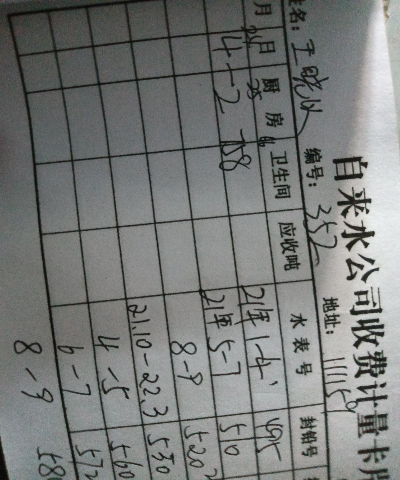 自来水公司收费计量卡片
姓名: 编号:352 地址:
月 日 厨房 卫生间 应收吨 水表号 封铅号
21年1-4 495
4-2 758 21年5-7 510
8-9 520
21.10-22.3 530
4-5 560
6-7 572
8-9 58